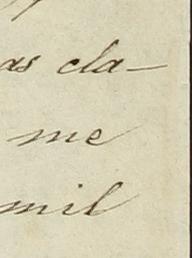 as cla-
me
mil